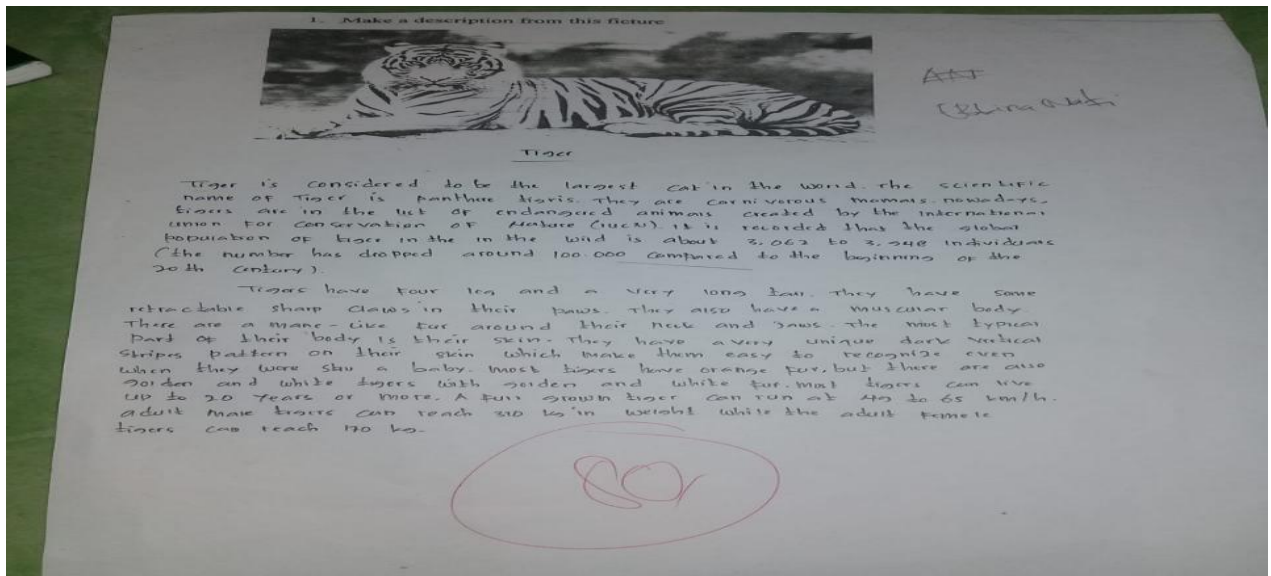 1. Make a description from this ficture
Tiger
Tiger is considered to be the largest cat in the world. The scientific
name of Tiger is panthre tigris. They are carnivorous mamals. nowadays,
tigers are in the list of endangered animals created by the international
union For conservation of Nature (IUCN). It is recorded that the global
population of tiger in the in the wild is about 3.062 to 3.948 individuals
(the number has dropped around 100.000 compared to the beginning of the
20 th century).
Tigers have four leg and a very long tail. They have some
retractable sharp claws in their paws. They also have a muscular body.
There are a mane-like fur around their neck and jaws. The most typical
part of their body is their skin. They have a very unique dark vertical
stripes pattern on their skin which make them easy to recognize even
when they were a baby. most tigers have orange fur, but there are also
golden and white tigers with golden and white fur. most tigers can live
up to 20 years or more. A full grown tiger can run at 49 to 65 km/h.
adult male tigers can reach 310 kg in weight while the adult Female
tigers can reach 170 kg.
80